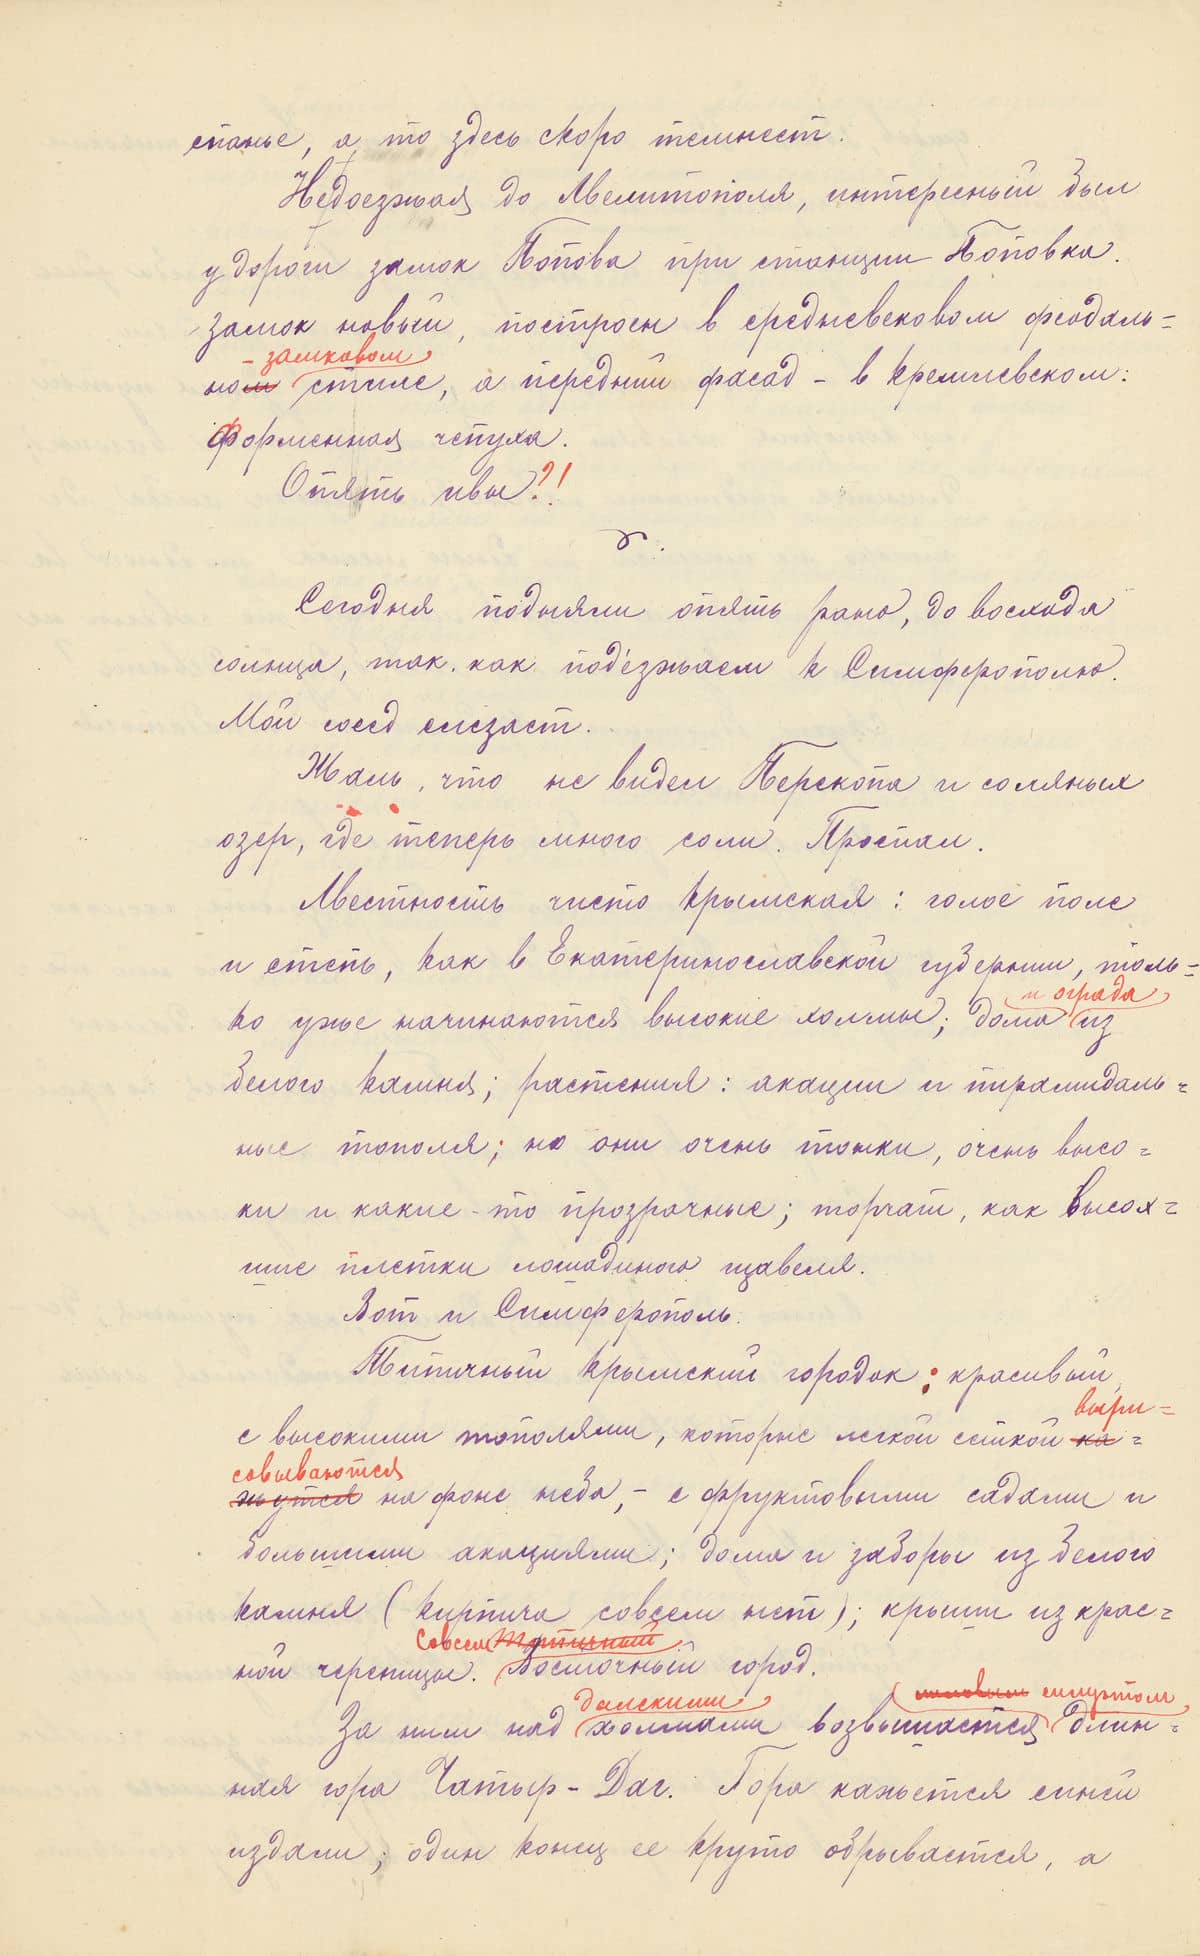 спанье, а то здесь скоро темнеет.
Недоезжая до Мелитополя, интересный был
у дороги замок Попова при станции Поповка.
Замок новый, построен в средневековом феодаль=
- замковом
ном стиле, а передний фасад - в кремлевском:
форменная чепуха.
Опять ивы?!
Сегодня подняли опять рано, до восхода
солнца, так как под'езжаем к Симферополю.
Мой сосед слезает.
Жаль, что не видел Перекопа и соляных
озер, где теперь много соли. Проспал.
Местность чисто крымская: голое поле
и степь, как в Екатеринославской губернии, толь=
и ограда
ко уже начинаются высокие холмы; дома из
белого камня; растения: акации и пирамидаль=
ные тополя; но они очень тонки, очень высо=
ки и какие-то прозрачные; торчат, как высох=
шие плетки лошадиного щавеля.
Вот и Симферополь.
Типичный крымский городок: красивый,
выри=
с высокими тополями, которые легкой сеткой ка=
совываются
жутся на фоне неба, - с фруктовыми садами и
большими акациями; дома и заборы из белого
камня (кирпича совсем нет); крыши из крас=
Совсем Типичный
ной черепицы. Восточный город.
далекими силуэтом
За ним над холмами возвышается длин=
ная гора Чатыр-Даг. Гора кажется синей
издали; один конец ее круто обрывается, а